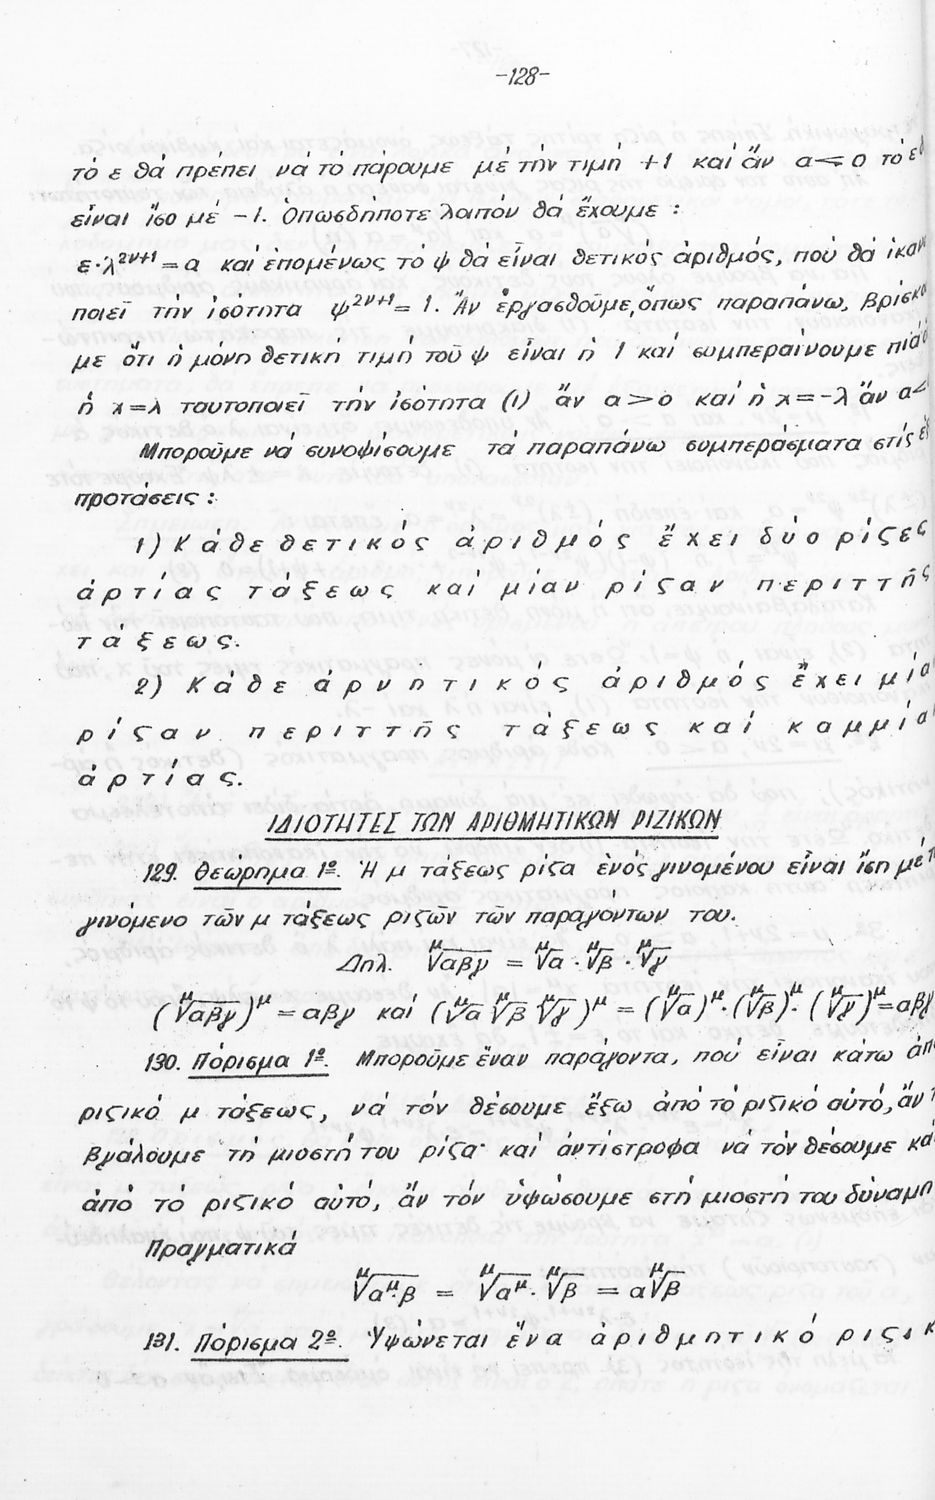 -128-
τό ε θά πρέπει νά τό πάρουμε μέ τήν τιμή +1 καί ἄν α<0 τό ε
εἶναι ἴσο μέ -1. Ὁπωσδήποτε λοιπόν θά ἔχουμε :
ε·λ²ᵛ⁺¹ = α καί ἑπομένως τό ψ θά εἶναι θετικός ἀριθμός, πού θά ἱκαν
ποιεῖ τήν ἰσότητα ψ²ᵛ⁺¹ = 1. Ἄν ἐργασθοῦμε, ὅπως παραπάνω, βρίσκο
με ὅτι ἡ μόνη θετική τιμή τοῦ ψ εἶναι ἡ 1 καί συμπεραίνουμε πιά
ἡ x=λ ταυτοποιεῖ τήν ἰσότητα (1) ἄν α>0 καί ἡ x=-λ ἄν α<
Μποροῦμε νά συνοψίσουμε τά παραπάνω συμπεράσματα στίς ἑ
προτάσεις :
1) Κάθε θετικός ἀριθμός ἔχει δύο ρίζες
ἀρτίας τάξεως καί μίαν ρίζαν περιττῆς
τάξεως.
2) Κάθε ἀρνητικός ἀριθμός ἔχει μία
ρίζαν περιττῆς τάξεως καί καμμία
ἀρτίας.
ΙΔΙΟΤΗΤΕΣ ΤΩΝ ΑΡΙΘΜΗΤΙΚΩΝ ΡΙΖΙΚΩΝ
129. Θεώρημα 1º. Ἡ μ τάξεως ρίζα ἑνός γινομένου εἶναι ἴση μέ τ
γινόμενο τῶν μ τάξεως ριζῶν τῶν παραγόντων του.
Δηλ. ᵘ√αβγ = ᵘ√α · ᵘ√β · ᵘ√γ
(ᵘ√αβγ)ᵘ = αβγ καί (ᵘ√α ᵘ√β ᵘ√γ)ᵘ = (ᵘ√α)ᵘ·(ᵘ√β)ᵘ·(ᵘ√γ)ᵘ=αβγ
130. Πόρισμα 1º. Μποροῦμε ἕναν παράγοντα, πού εἶναι κάτω ἀπ
ριζικό μ τάξεως, νά τόν θέσουμε ἔξω ἀπό τό ριζικό αὐτό, ἄν τ
βγάλουμε τή μιοστή του ρίζα· καί ἀντίστροφα νά τόν θέσουμε κά
ἀπό τό ριζικό αὐτό, ἄν τόν ὑψώσουμε στή μιοστή του δύναμη
Πραγματικά
ᵘ√αᵘ·β = ᵘ√αᵘ · ᵘ√β = αᵘ√β
131. Πόρισμα 2º. Ὑψώνεται ἕνα ἀριθμητικό ριζικ